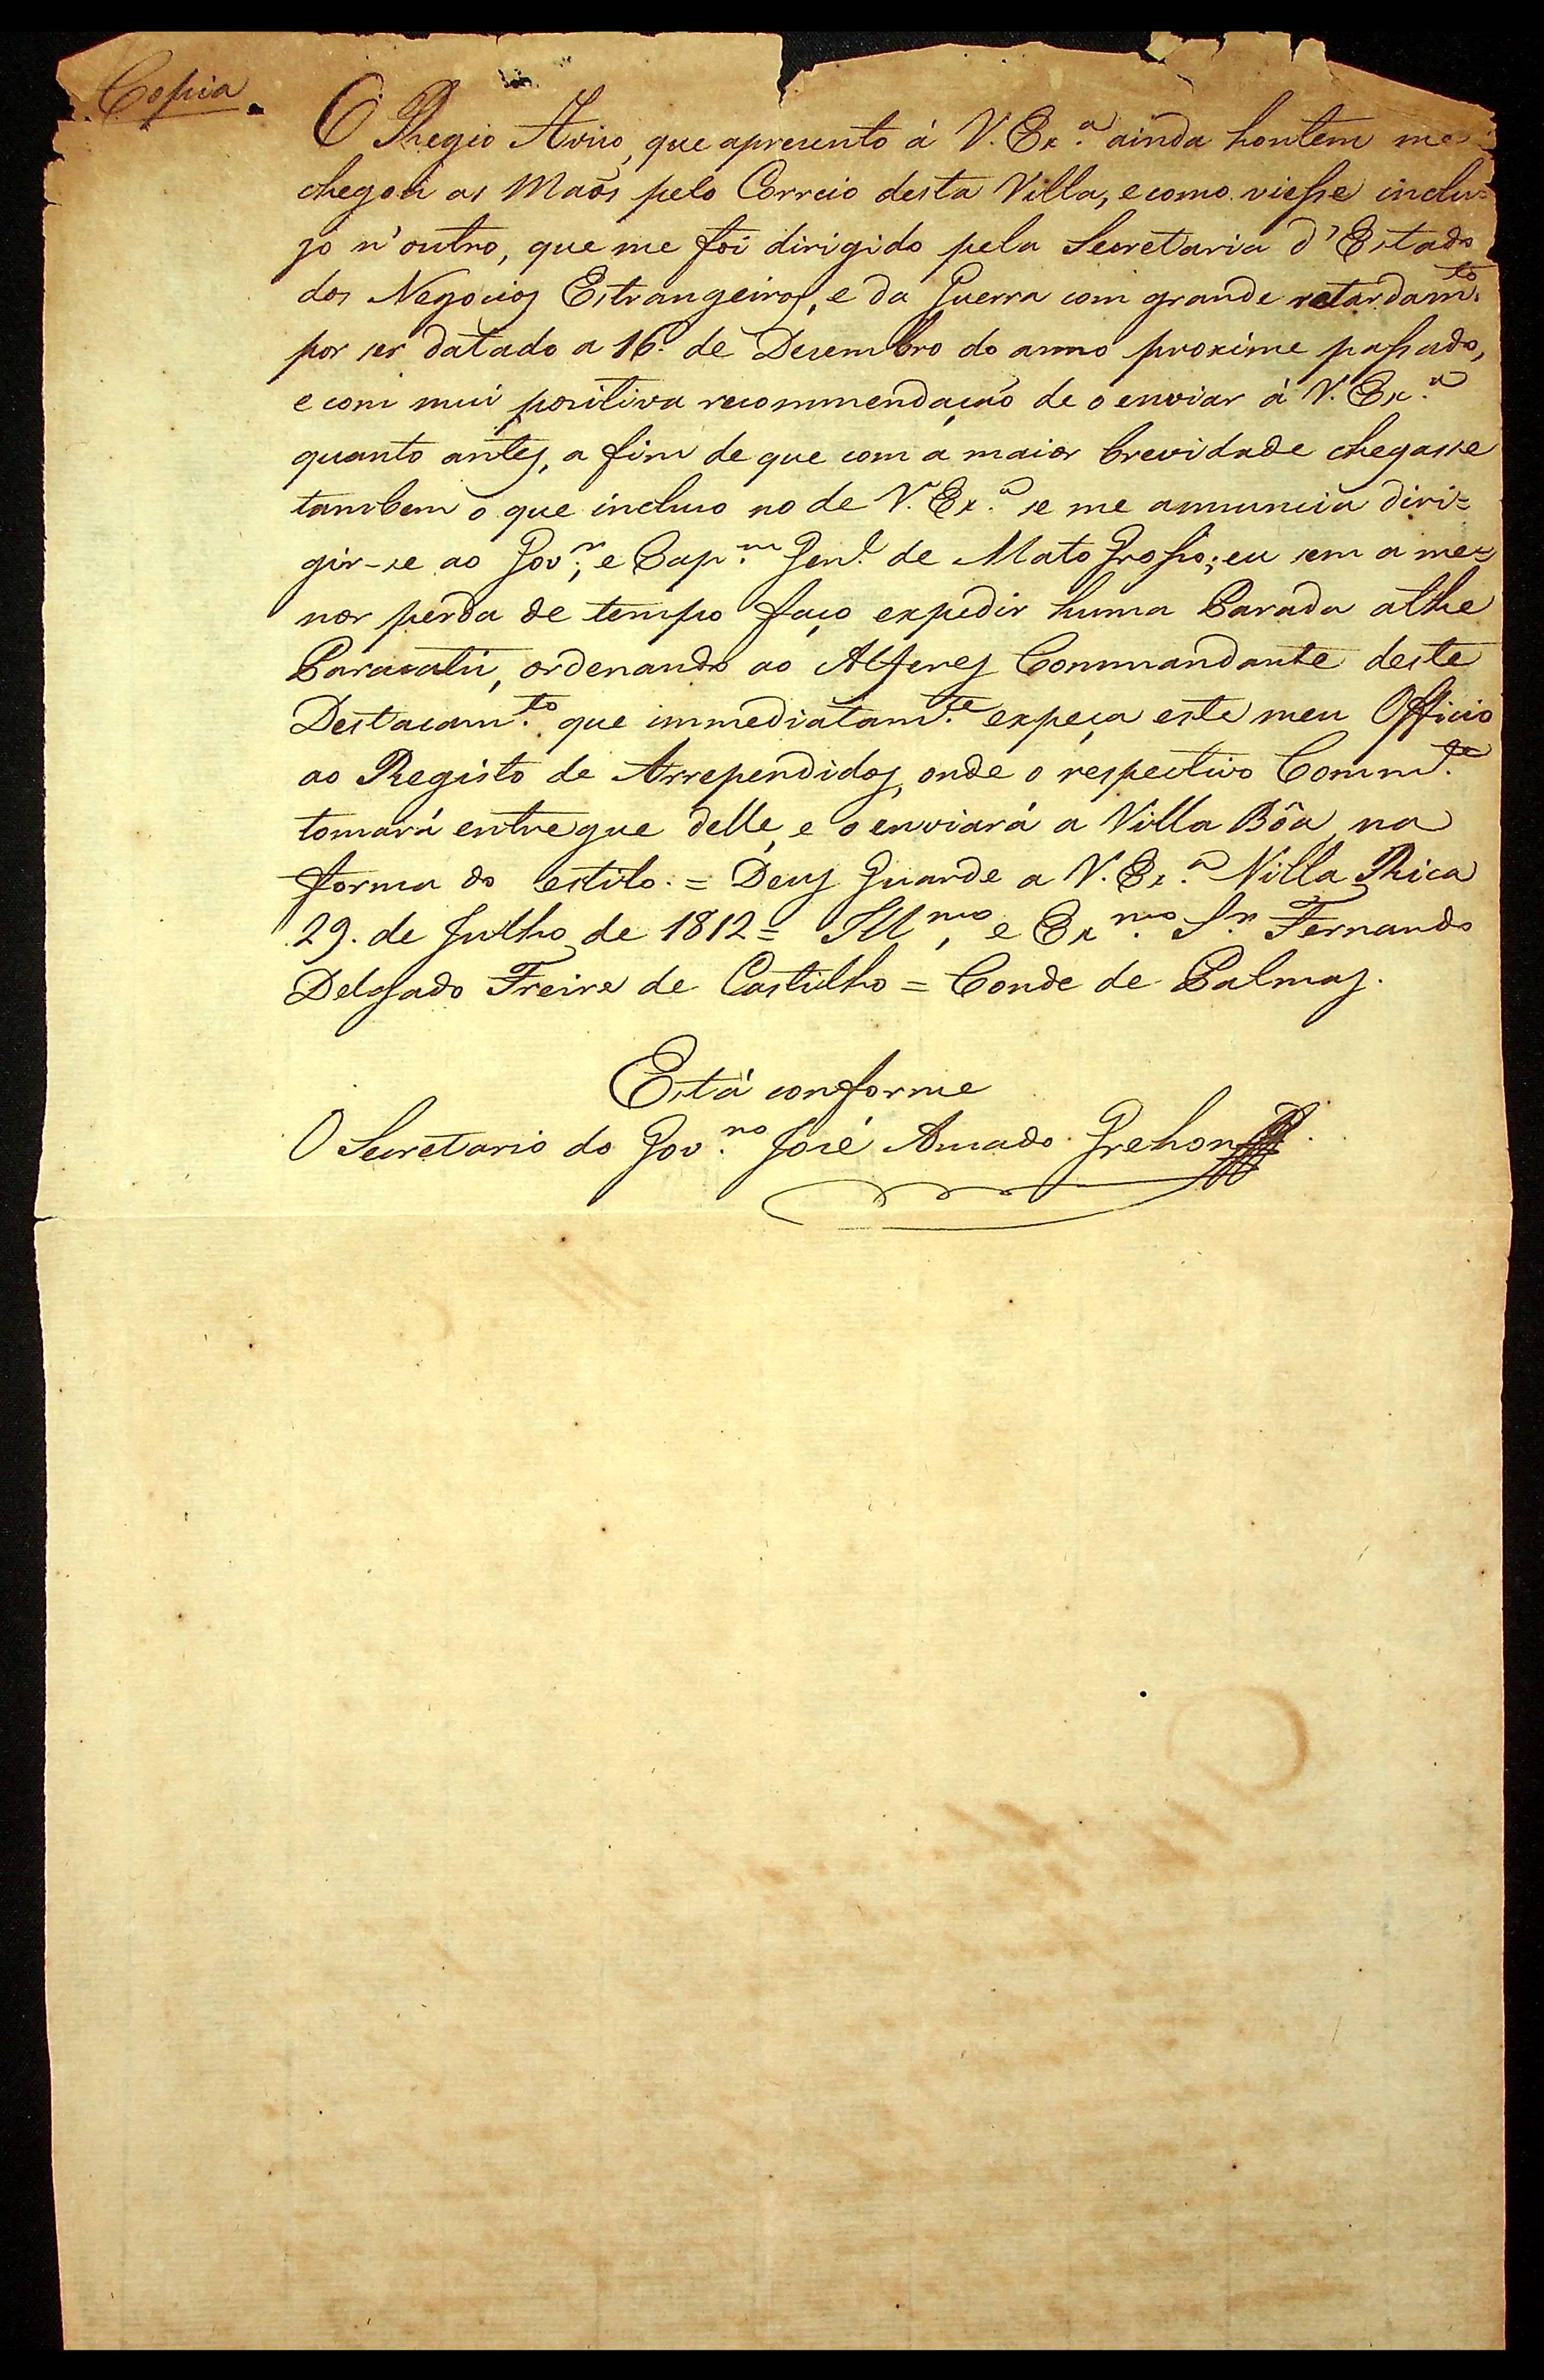 Copia
O Regio Aviso, que apresento á V. Ex.ª ainda hontem me
chegou as Maõs pelo Correio desta Villa, e como viesse inclu=
zo n'outro, que me foi dirigido pela Secretaria d'Estado
dos Negocios Estrangeiros, e da Guerra com grande retardam.to
por ser datado a 16. de Desembro do anno proximo passado,
e com mui positiva recommendação de o enviar á V. Ex.ª
quanto antes, a fim de que com a maior brevidade chegasse
tambem o que incluso no de V. Ex.ª se me annuncia diri=
gir-se ao Gov.or, e Cap.m Gen.l de Mato Grosso; eu sem a me=
nor perda de tempo faço expedir huma Parada athe
Paracatú, ordenando ao Alferes Commandante deste
Destacam.to que immediatam.te expeça este meu Officio
ao Registo de Arrependidos, onde o respectivo Comm.de
tomará entregue delle, e o enviará a Villa Bôa, na
forma do estilo. = Deus Guarde a V. Ex.ª Villa Rica
29. de Julho de 1812 = Ill.mo, e Ex.mo S.r Fernando
Delgado Freire de Castilho = Conde de Palmas.
Está conforme
O Secretario do Gov.no José Amado Grehon